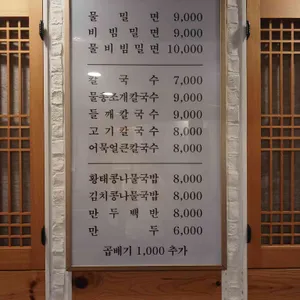 물 밀 면 9,000
비 빔 밀 면 9,000
물 비 빔 밀 면 10,000
칼 국 수 7,000
물총조개칼국수 9,000
들 깨 칼 국 수 9,000
고 기 칼 국 수 8,000
어묵얼큰칼국수 8,000
황태콩나물국밥 8,000
김치콩나물국밥 8,000
만 두 백 반 8,000
만 두 6,000
곱배기 1,000 추가